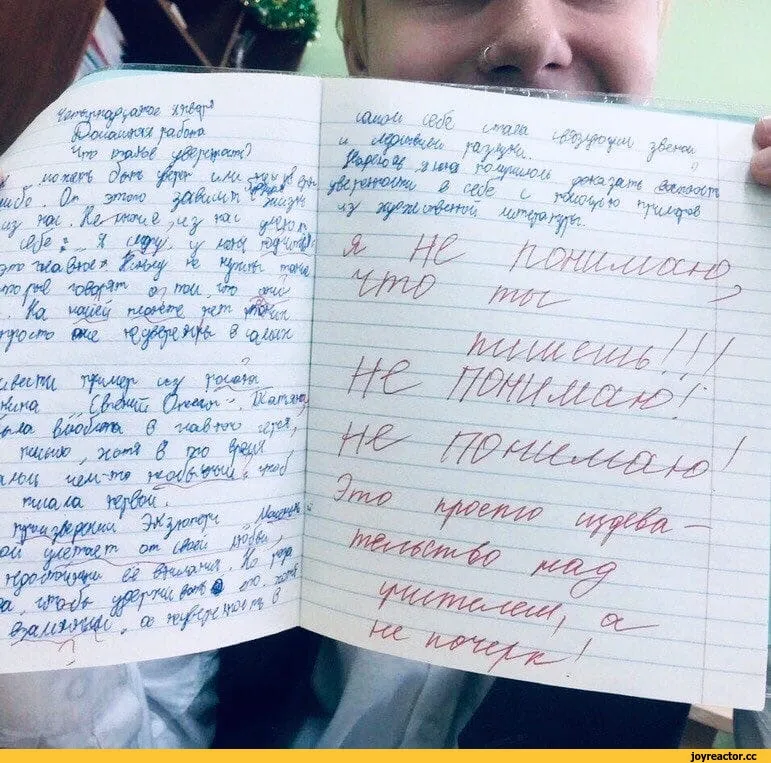 Четырнадцатое января
Домашняя работа
Что такое уверенность?
может быть уверен или
либо. От этого зависит жизнь
из нас. Не многие из нас
себе: Я
это главное. Никому не нужны такие
которые говорят о том, что они
. На нашей планете нет таких
просто они не уверены в самих
привести пример из романа
"Евгений Онегин". Татьяна
была влюблена в главного героя,
письмо, хотя в то время
чем-то необычным, чтоб
писала первой.
произведении Экзюпери "Маленький
улетает от своей любви,
недостойным её внимания. Но роза
чтобы удержать его, хотя
взаимны, а неуверенность в
самом себе стала связующим звеном
и
разлуки.
Надеюсь, у меня получилось доказать важность
уверенности в себе с помощью примеров
из художественной литературы.
Я НЕ понимаю,
что ты
пишешь!!!
НЕ ПОНИМАЮ!
НЕ ПОНИМАЮ!
Это просто издева-
тельство над
учителем, а
не почерк!
joyreactor.cc